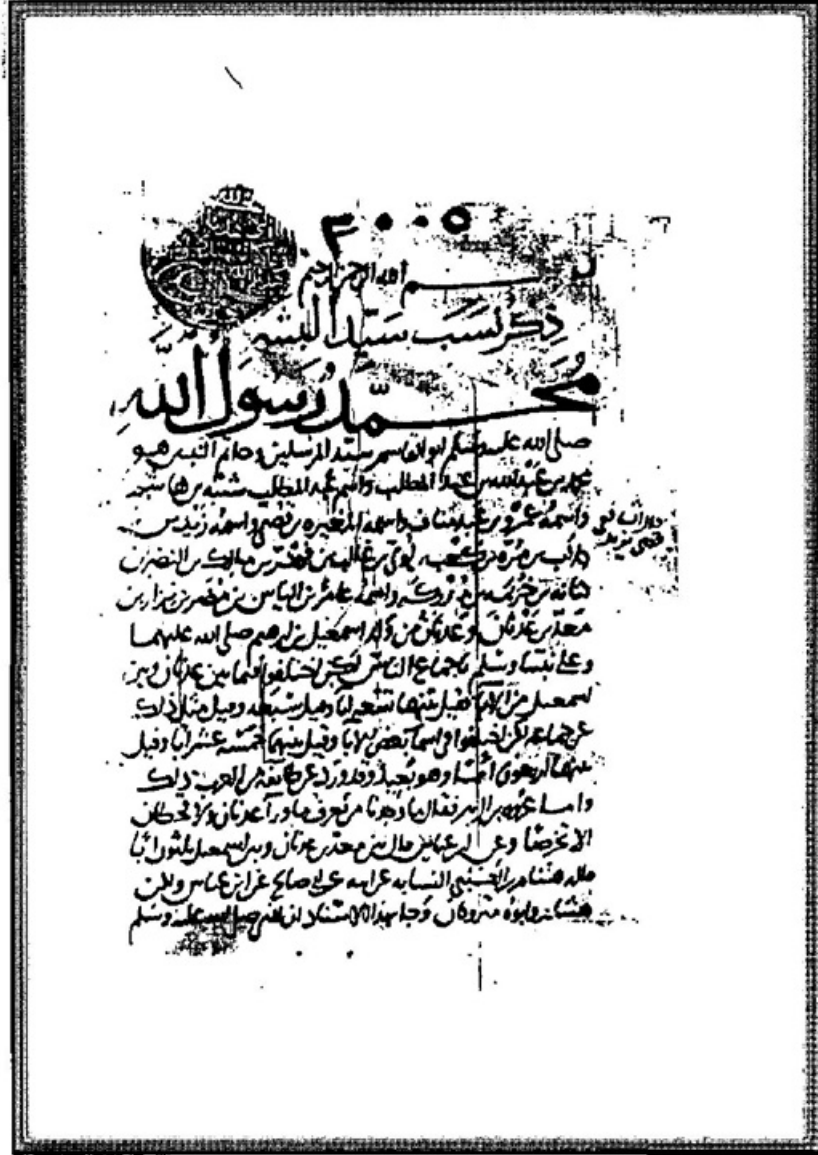 ٣٠٠٥
بسم الله الرحمن الرحيم
ذكر نسب سيد البشر
محمد رسول الله
صلى الله عليه وسلم ابو القاسم سيد المرسلين وخاتم النبيين هو
محمد بن عبد الله بن عبد المطلب واسم عبد المطلب شيبة بن هاشم
واسمه عمرو بن عبد مناف واسمه المغيره بن قصى واسمه زيد بن
كلاب بن مره بن كعب بن لوى بن غالب بن فهر بن مالك بن النضر بن
كنانه بن خزيمه بن مدركه واسمه عامر بن الياس بن مضر بن نزار بن
معد بن عدنان وعدنان من ولد اسمعيل بن ابرهيم صلى الله عليهما
وعلى نبينا وسلم باجماع الناس لكن اختلفوا فيما بين عدنان وبين
اسمعيل من الابا فقيل بينهما تسعه ابا وقيل سبعه وقيل مثل ذلك
عن جماعه لكن اختلفوا فى اسما بعض الابا وقيل بينهما خمسه عشر ابا وقيل
بينهما اربعون ابا وهو بعيد وقد ورد عن طائفه من العرب ذلك
واما عروه بن الزبير فقال ما وجدنا من يعرف ما ورآ عدنان ولا قحطان
الا تخرصا وعن ابن عباس قال بين معد بن عدنان وبين اسمعيل ثلثون ابا
قاله هشام بن الكلبى النسابه عن ابيه عن ابى صالح عن ابن عباس ولكن
هشام وابوه متروكان وجا بهذا الاسناد ان النبى صلى الله عليه وسلم